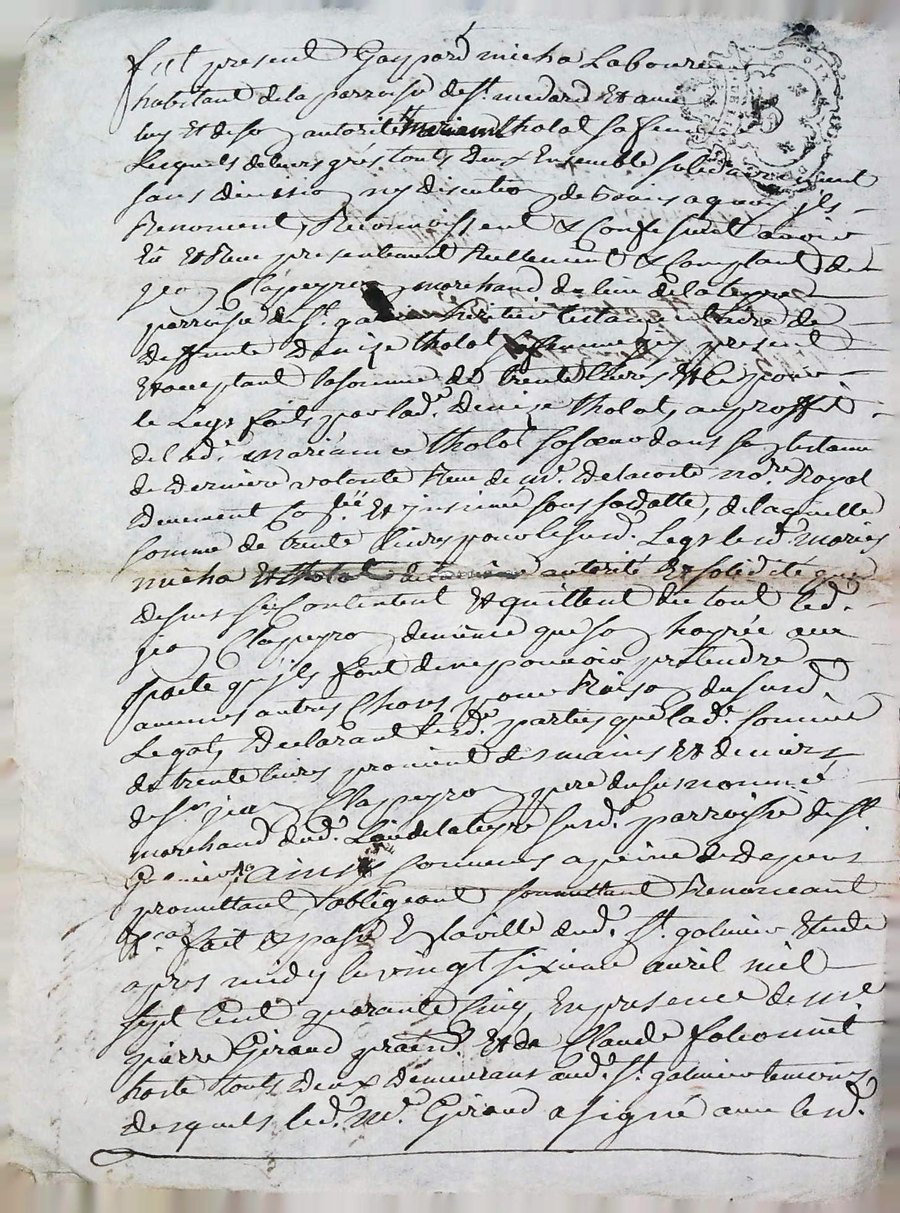 fut present Gaspard micha Laboure
habitant de la parroisse de st. medard Et avec
luy Et de son autorité mariane tholot sa fem
Lesquels de leurs grés touts deux Ensemble solidairement
sans division ny discution de biens a quoy ils
Renoncent, Reconnoissent & Confessent avoir
Eü Et Reçu presentement Reellement & Comptant de
jean Clapeyron marchand du lieu de la
parroisse de st. galmier heritier testamentaire de
deffunte Denize tholot present
Et acceptant la somme de trente livres Et ce pour
le Legs faits par lad. Denize tholot, au proffit
de lad. mariane tholot sa sœur dans son testament
de Derniere volonté Reçu de me. Delacoste nore. Royal
Deuement Et insinué sous sa datte, de laquelle
somme de trente livres pour le susd. Legs les d. mariés
micha Et tholot autorité Et solidité que
dessus se Contentent Et quittent du tout led.
jean Clapeyron de même que son hoyrie avec
pacte qu'ils font de ne pouvoir pretendre
aucunes autres Choses pour Raison du susd.
Legat, Declarant lesd. parties que lad. somme
de trente livres provient des mains Et deniers
de sr. jean Clapeyron pere du susnommé
marchand dud. Lieu de susd. parroisse de st.
galmier ainsy Convenus a peine de depens
promettant, obligeant soumettant Renonceant
&ca. fait & passé En la ville dud. st. galmier Etude
apres midy le vingt sixieme avril mil
sept Cent quarante Cinq, En presence de me
pierre Giraud Et de Claude
hoste touts deux demeurans aud. st. galmier temoins
desquels led. Me. Giraud a signé avec led.